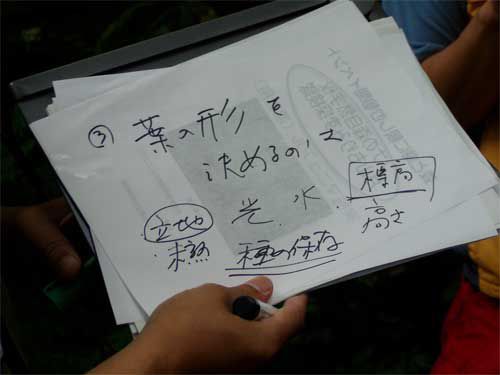 ③ 葉の形を
決めるのは
光、水、標高
高さ
立地
種の保存